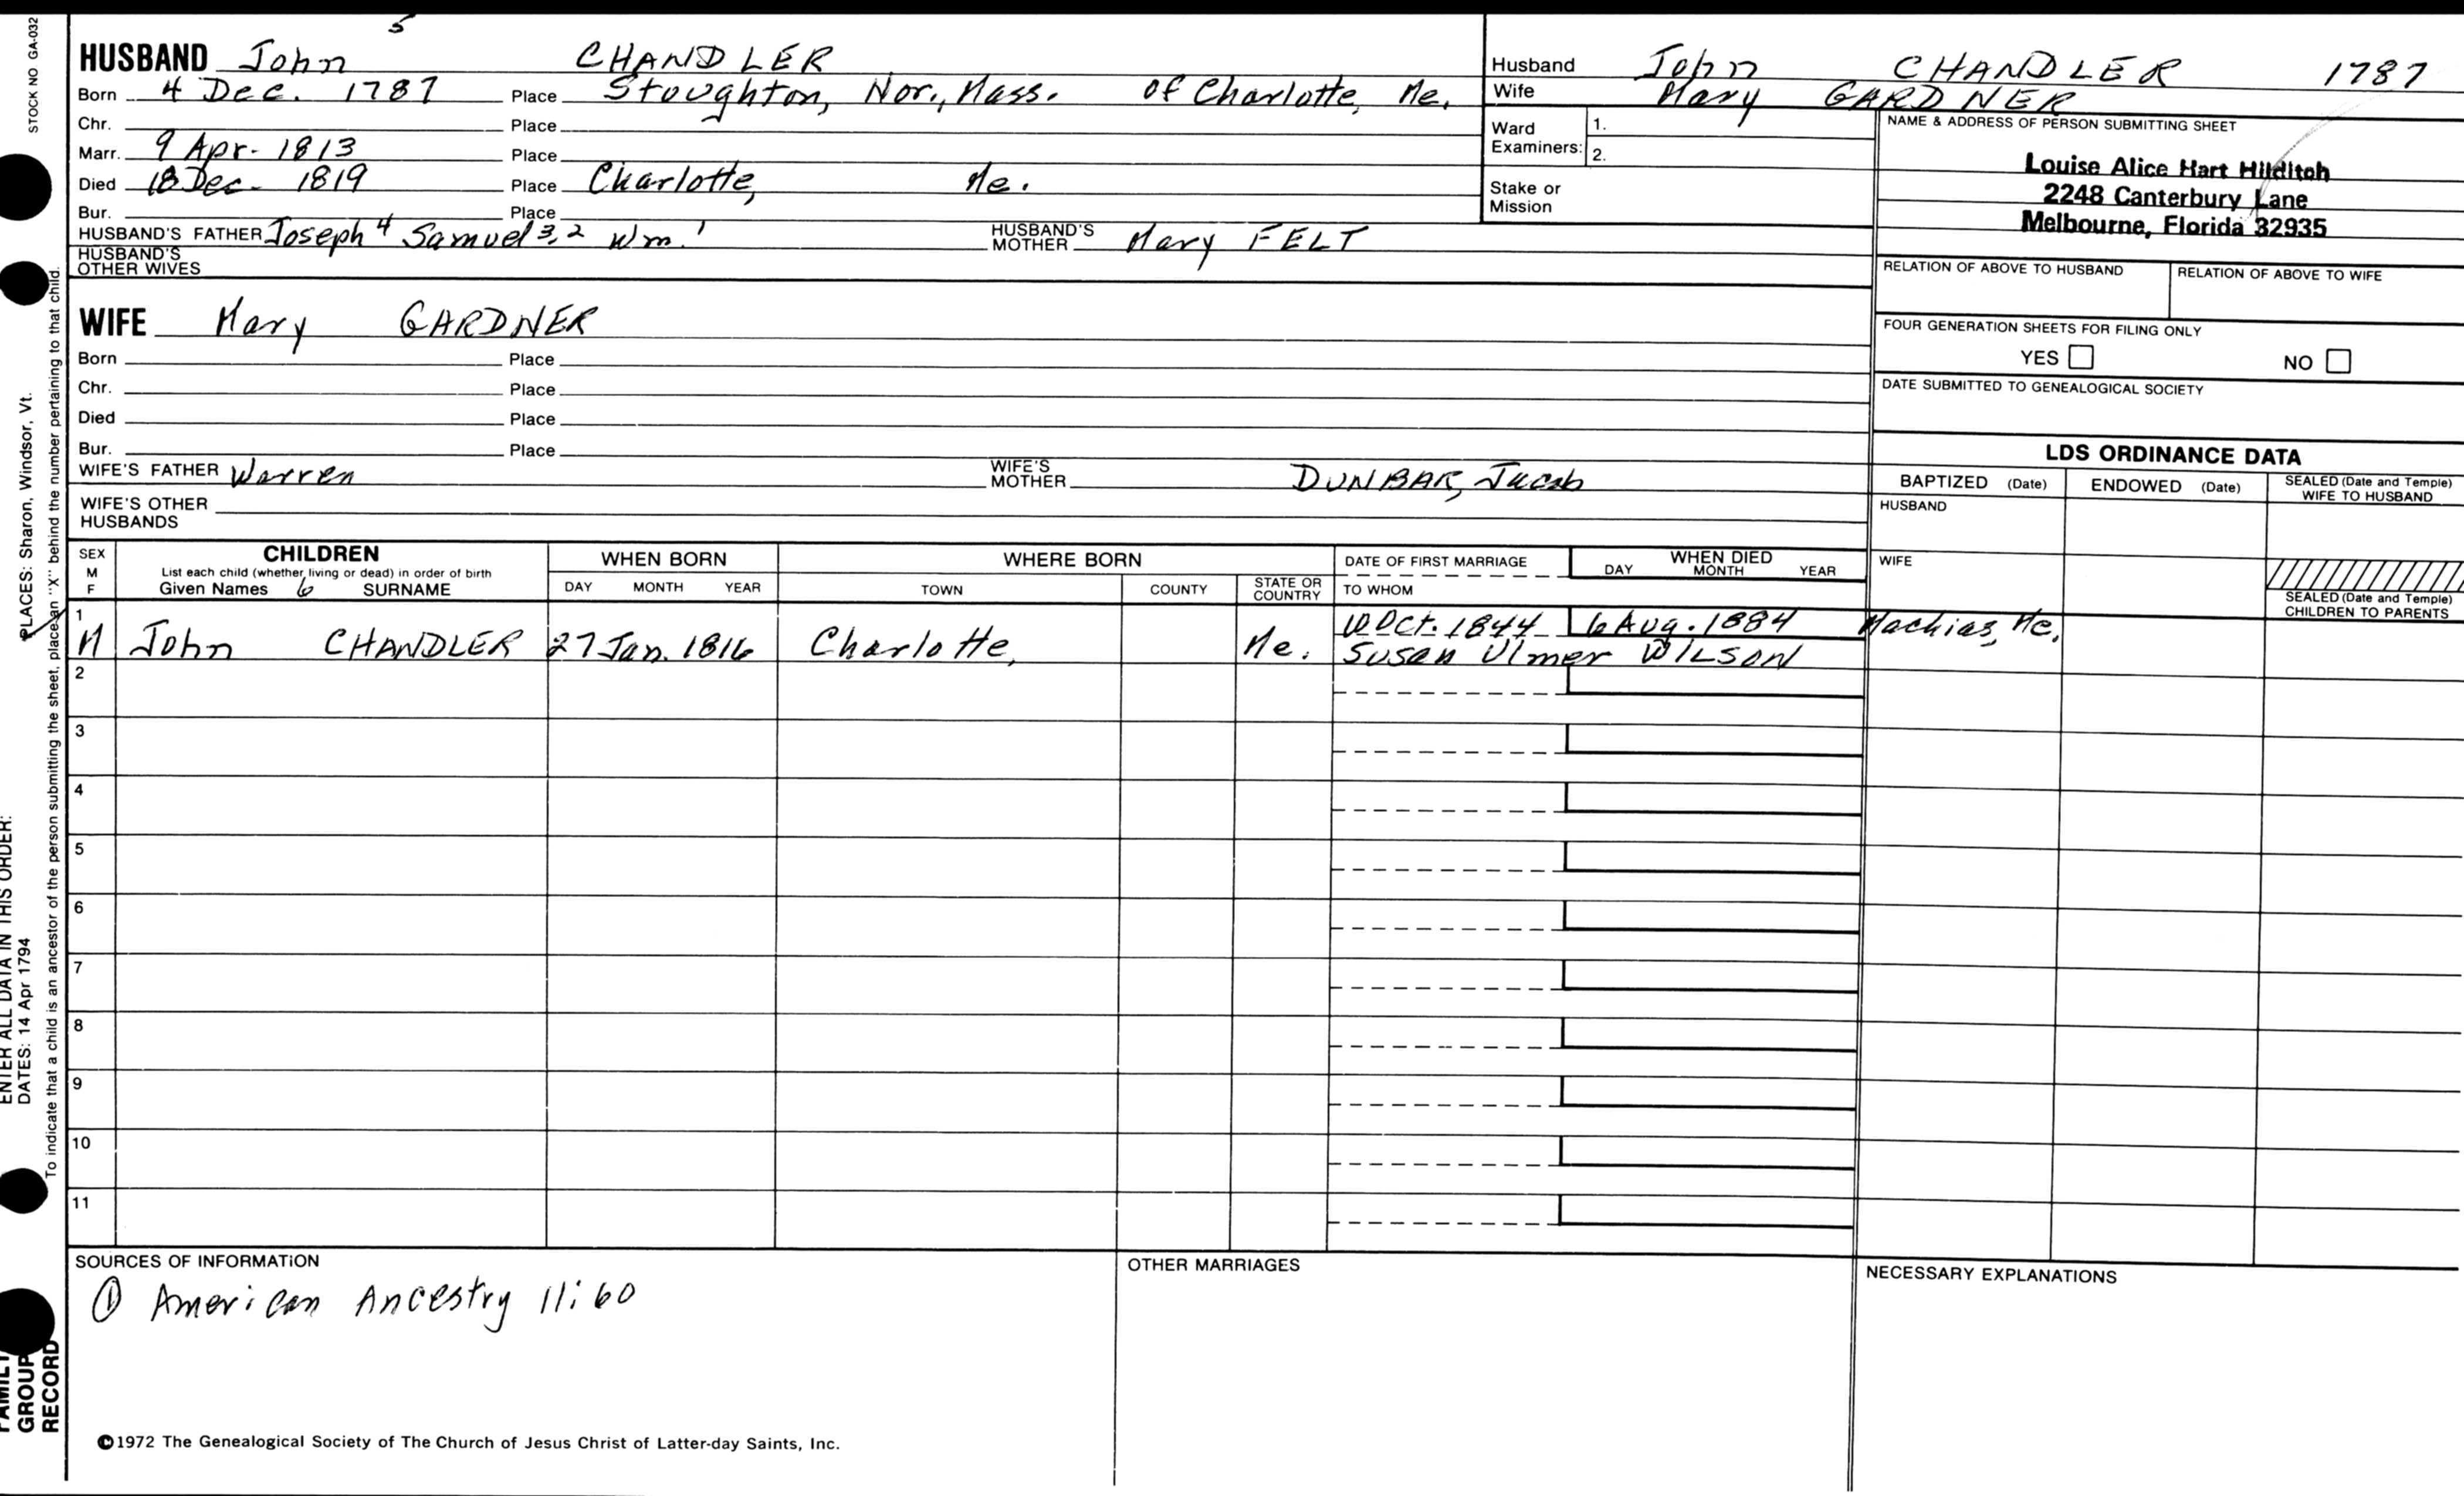 5
HUSBAND John CHANDLER
Born 4 Dec. 1787 Place Stoughton, Nor., Mass. of Charlotte, Me.
Chr. Place
Marr. 9 Apr. 1813 Place
Died 18 Dec. 1819 Place Charlotte, Me.
Bur. Place
HUSBAND'S FATHER Joseph 4 Samuel 3,2 Wm. 1 HUSBAND'S MOTHER Mary FELT
HUSBAND'S
OTHER WIVES
WIFE Mary GARDNER
Born Place
Chr. Place
Died Place
Bur. Place
WIFE'S FATHER Warren WIFE'S MOTHER DUNBAR, Jacob
WIFE'S OTHER
HUSBANDS
Husband John CHANDLER 1787
Wife Mary GARDNER
Ward
Examiners:
1.
2.
Stake or
Mission
NAME & ADDRESS OF PERSON SUBMITTING SHEET
Louise Alice Hart Hilditch
2248 Canterbury Lane
Melbourne, Florida 32935
RELATION OF ABOVE TO HUSBAND RELATION OF ABOVE TO WIFE
FOUR GENERATION SHEETS FOR FILING ONLY
YES NO
DATE SUBMITTED TO GENEALOGICAL SOCIETY
LDS ORDINANCE DATA
BAPTIZED (Date) ENDOWED (Date) SEALED (Date and Temple)
WIFE TO HUSBAND
HUSBAND
WIFE
SEALED (Date and Temple)
CHILDREN TO PARENTS
SEX
M
F
CHILDREN
List each child (whether living or dead) in order of birth
Given Names 6 SURNAME
WHEN BORN
DAY MONTH YEAR
WHERE BORN
TOWN COUNTY STATE OR COUNTRY
DATE OF FIRST MARRIAGE
TO WHOM
WHEN DIED
DAY MONTH YEAR
1
M John CHANDLER 27 Jan. 1816 Charlotte, Me. 10 Oct. 1844 6 Aug. 1884 Machias, Me.
Susan Ulmer WILSON
2
3
4
5
6
7
8
9
10
11
SOURCES OF INFORMATION
① American Ancestry 11:60
OTHER MARRIAGES
NECESSARY EXPLANATIONS
©1972 The Genealogical Society of The Church of Jesus Christ of Latter-day Saints, Inc.
STOCK NO GA-032
To indicate that a child is an ancestor of the person submitting the sheet, place an "X" behind the number pertaining to that child.
PLACES: Sharon, Windsor, Vt.
ENTER ALL DATA IN THIS ORDER:
DATES: 14 Apr 1794
FAMILY
GROUP
RECORD